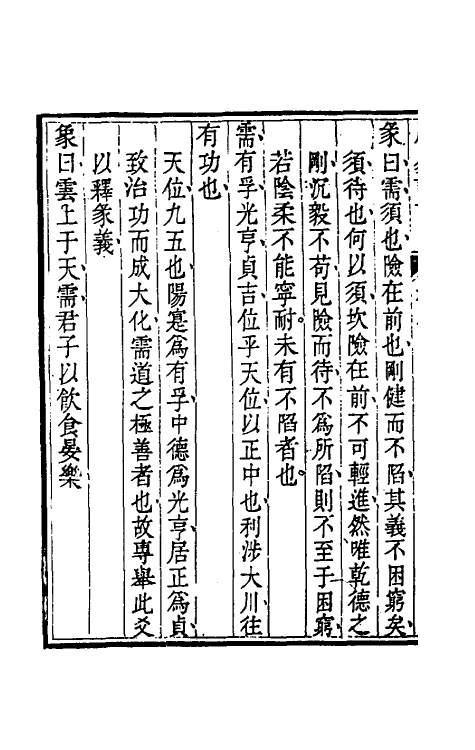 彖曰需須也險在前也剛健而不陷其義不困窮矣
須待也何以須坎險在前不可輕進然唯乾德之
剛沉毅不苟見險而待不為所陷則不至于困窮
若陰柔不能寧耐未有不陷者也
需有孚光亨貞吉位乎天位以正中也利涉大川往
有功也
天位九五也陽寔為有孚中德為光亨居正為貞
致治功而成大化需道之極善者也故專舉此爻
以釋彖義
象曰雲上于天需君子以飲食晏樂